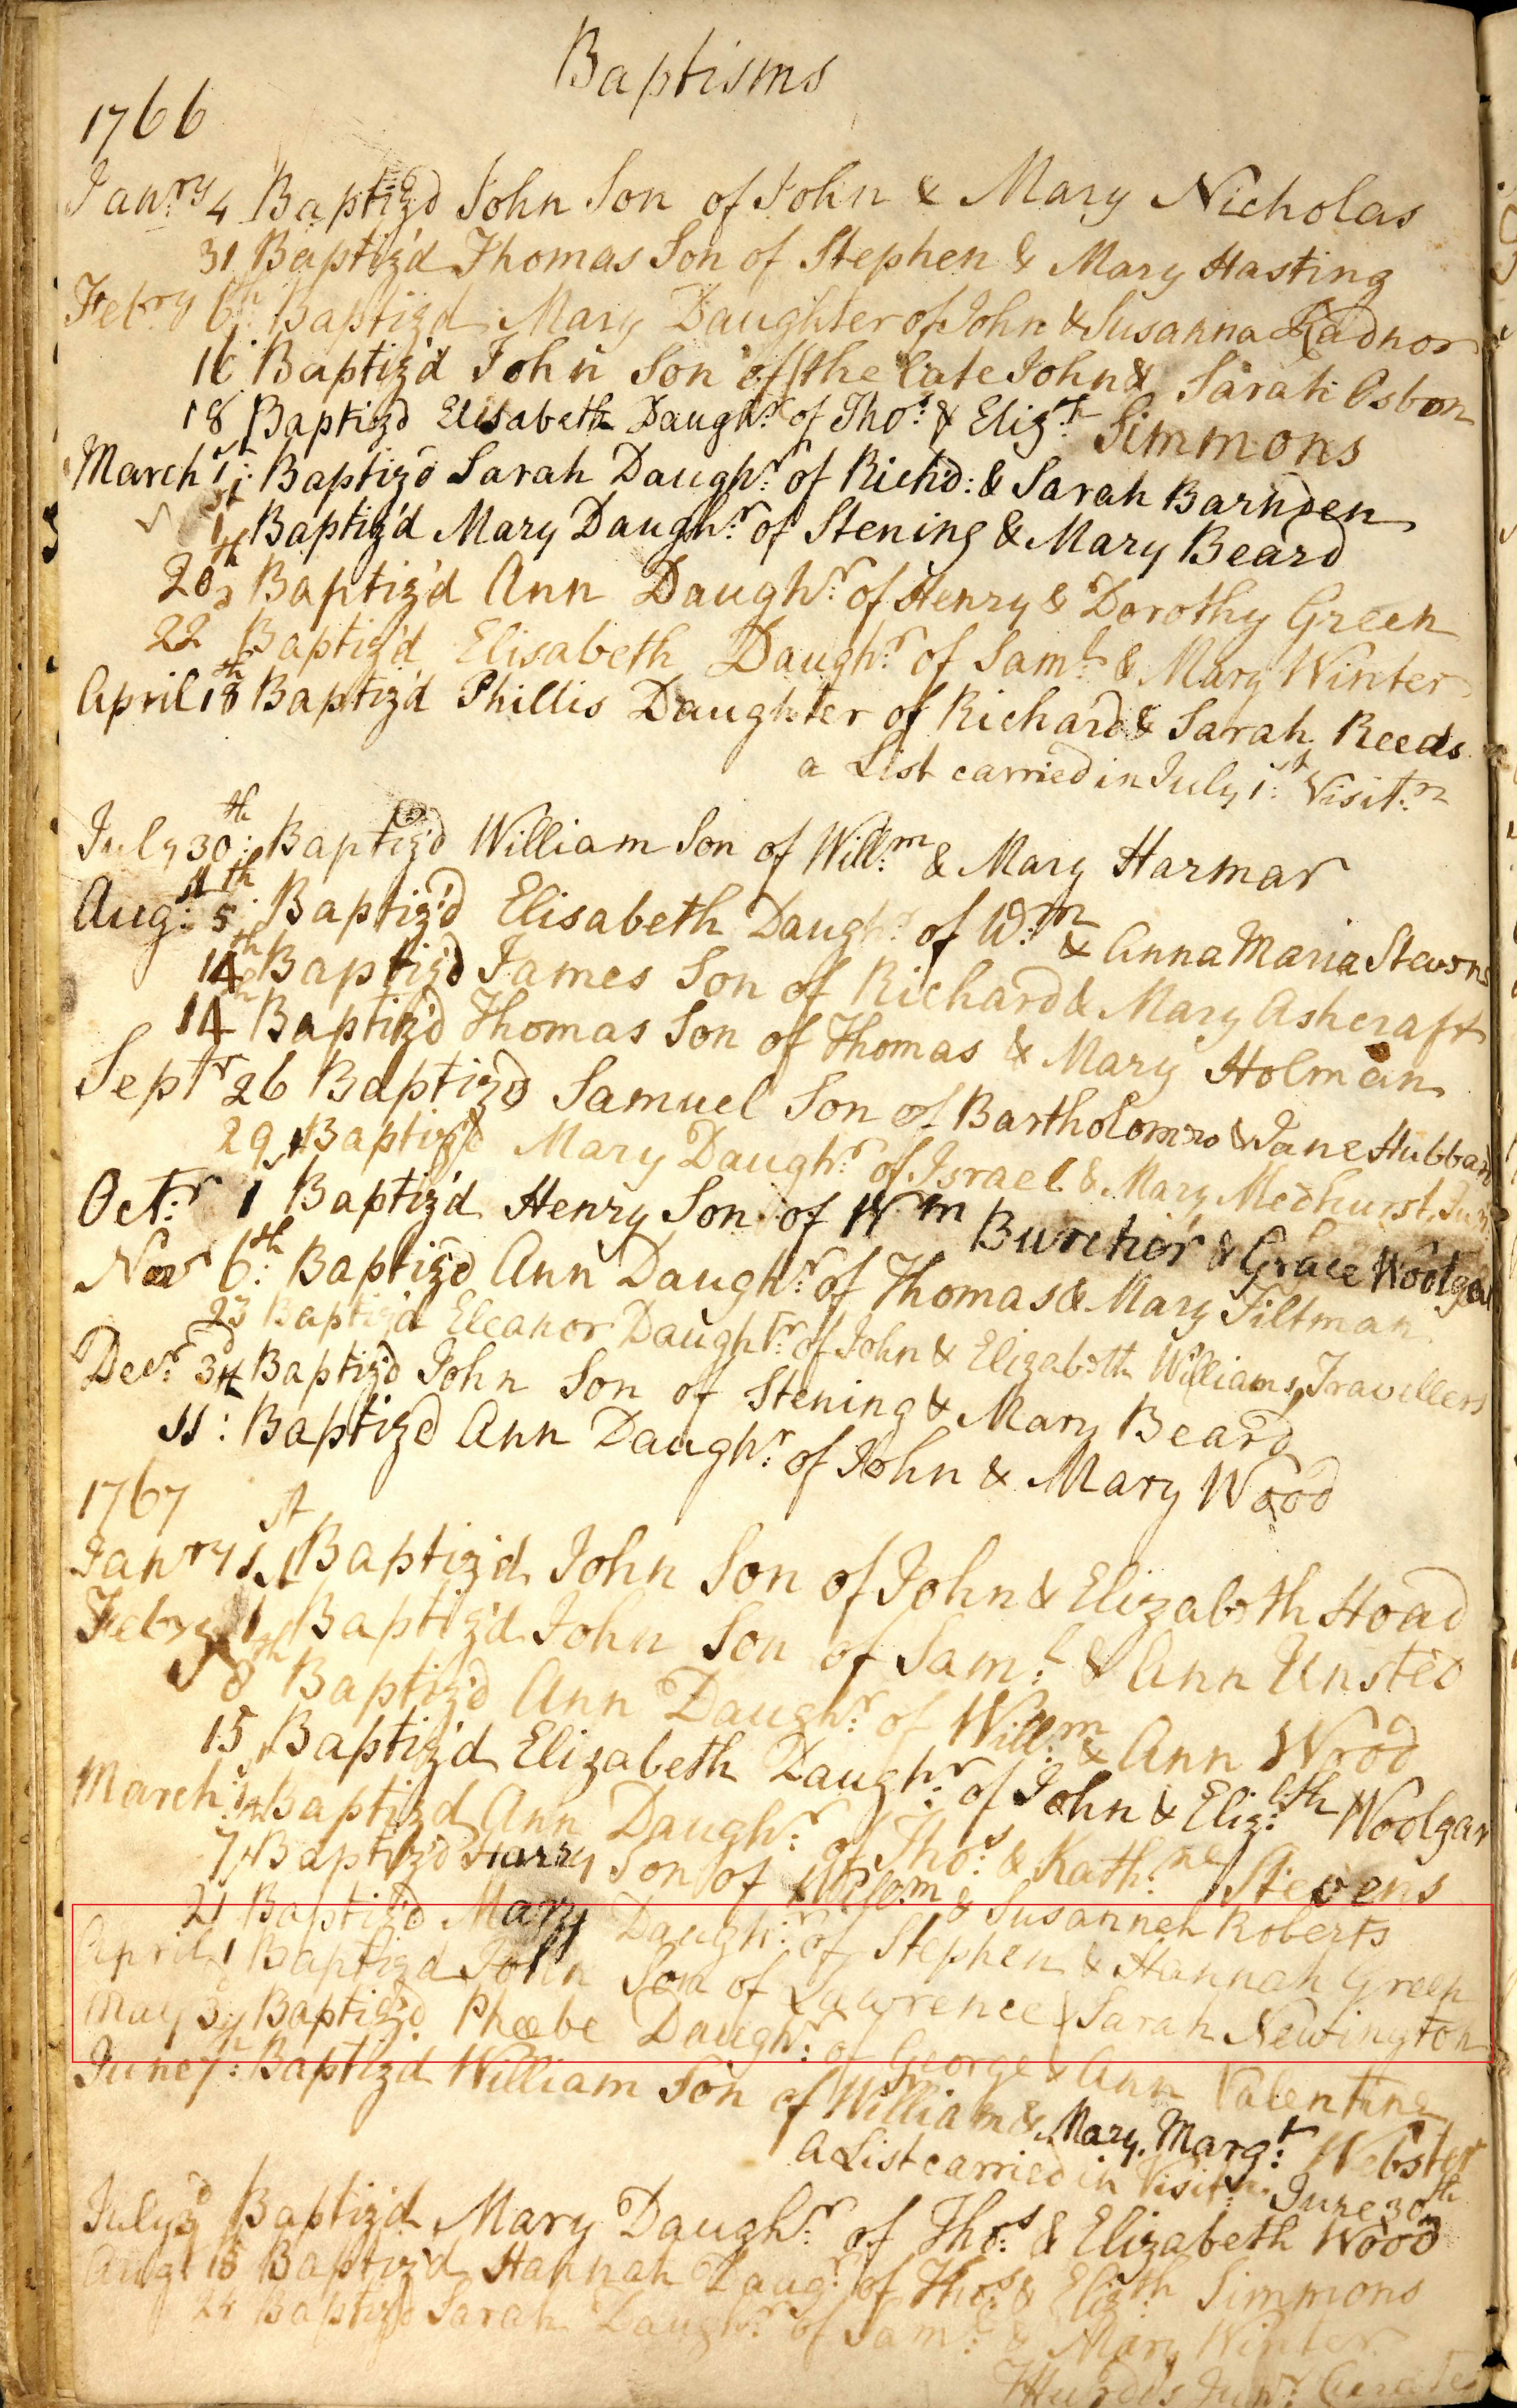 Baptisms
1766
Janry 4 Baptiz'd John Son of John & Mary Nicholas
31 Baptiz'd Thomas Son of Stephen & Mary Hasting
Febry 6th: Baptiz'd Mary Daughter of John & Susanna Radnor
16 Baptiz'd John Son of the late John & Sarah Osborn
18 Baptiz'd Elisabeth Daughr: of Thos: & Elizth: Simmons
March 1st: Baptiz'd Sarah Daughr: of Richd: & Sarah Barnden
1st Baptiz'd Mary Daughr: of Stening & Mary Beard
20th Baptiz'd Ann Daughr: of Henry & Dorothy Green
22 Baptiz'd Elisabeth Daughr: of Saml: & Mary Winter
April 18th Baptiz'd Phillis Daughter of Richard & Sarah Reeds
a List carried in July 1st: Visitn:
July 30th: Baptiz'd William Son of Willm: & Mary Harmar
Aug: 5th: Baptiz'd Elisabeth Daughr: of Wm: & Anna Maria Stevens
14th Baptiz'd James Son of Richard & Mary Ashcraft
14th Baptiz'd Thomas Son of Thomas & Mary Holman
Septr 26 Baptiz'd Samuel Son of Bartholomew & Jane Hubbard
29 Baptiz'd Mary Daughr: of Israel & Mary Medhurst, Junr
Octr: 1st Baptiz'd Henry Son of Wm Burcher & Grace Woolgar
Novr 6th: Baptiz'd Ann Daughr: of Thomas & Mary Tiltman
23 Baptiz'd Eleanor Daughtr: of John & Elizabeth Williams, Travellers
Decr: 3d Baptiz'd John Son of Stening & Mary Beard
11th: Baptiz'd Ann Daughr: of John & Mary Wood
1767
Janry 1st Baptiz'd John Son of John & Elizabeth Hoad
Febry 1st Baptiz'd John Son of Saml: & Ann Unsted
8th Baptiz'd Ann Daughr: of Willm: & Ann Wood
15 Baptiz'd Elizabeth Daughr: of John & Elizbth: Woolgar
March 1st Baptiz'd Ann Daughr: of Thos: & Kathne: Stevens
7th Baptiz'd Harry Son of Willm: & Susannah Roberts
21 Baptiz'd Mary Daughr: of Stephen & Hannah Green
April 1 Baptiz'd John Son of Lawrence & Sarah Newington
May 3d Baptiz'd Phœbe Daughr: of George & Ann Valentine
June 7th: Baptiz'd William Son of William & Mary Margt: Webster
A List carried in Visitn: June 30th
July 3d Baptiz'd Mary Daughr: of Thos: & Elizabeth Wood
Augt 15 Baptiz'd Hannah Daugr: of Thos: & Elizth: Simmons
24 Baptiz'd Sarah Daughr: of Saml: & Mary Winter
Hurdis Junr: Curate